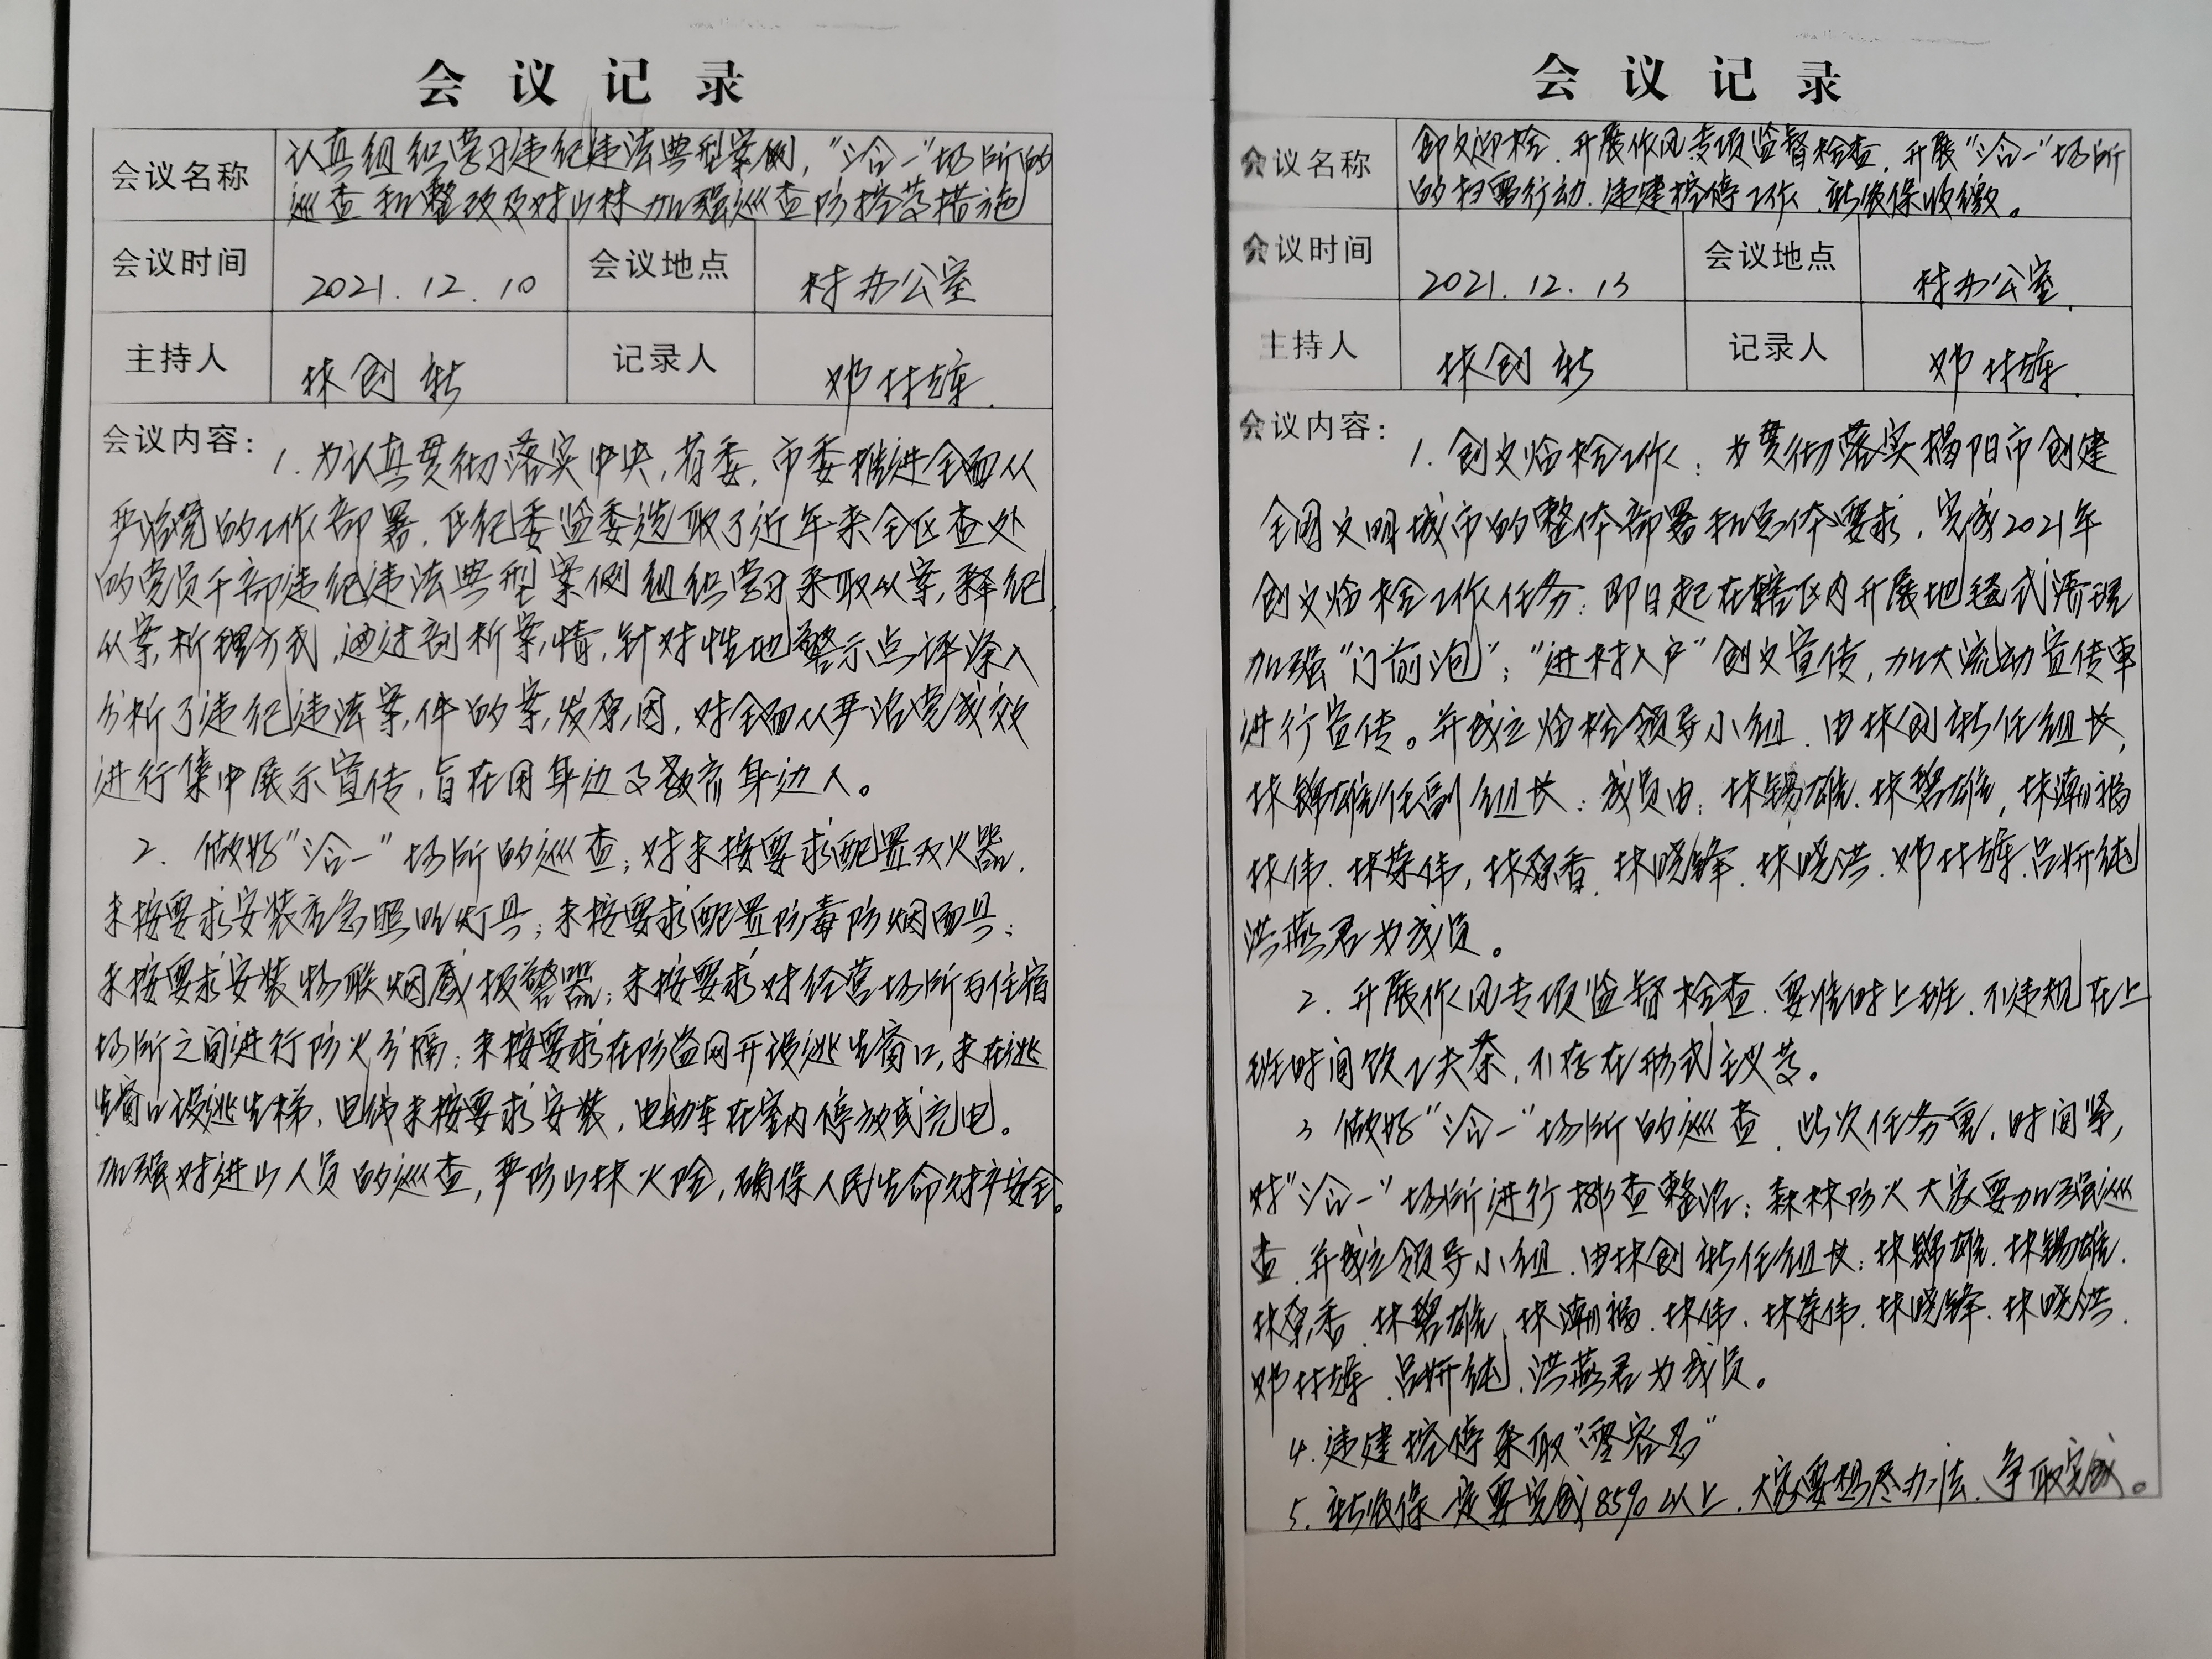 会议记录
会议名称
认真组织学习违纪违法典型案例，“三合一”场所的
巡查和整改及对山林加强巡查防控等措施
会议时间
2021.12.10
会议地点
村办公室
主持人
林创新
记录人
邓林雄.
会议内容：
1.为认真贯彻落实中央，省委，市委推进全面从
严治党的工作部署，区纪委监委选取了近年来全区查处
的党员干部违纪违法典型案例组织学习采取以案,释纪,
以案,析理方式，通过剖析案情，针对性地警示点评深入
分析了违纪违法案件的案发原因，对全面从严治党成效
进行集中展示宣传，旨在用身边及教育身边人。
2. 做好“三合一”场所的巡查；对未按要求配置灭火器.
未按要求安装应急照明灯具；未按要求配置防毒防烟面具；
未按要求安装物联烟感报警器；未按要求对经营场所与住宿
场所之间进行防火分隔；未按要求在防盗网开设逃生窗口,未在逃
生窗口设逃生梯，电线未按要求安装，电动车在室内停放或充电。
加强对进山人员的巡查，严防山林火险，确保人民生命财产安全。
会议记录
会议名称
创文迎检.开展作风专项监督检查，开展“三合一”场所
的扫雷行动.违建控停工作.新农保收缴。
会议时间
2021.12.13
会议地点
村办公室.
主持人
林创新
记录人
邓林雄.
会议内容：
1.创文迎检工作：为贯彻落实揭阳市创建
全国文明城市的整体部署和总体要求，完成2021年
创文迎检工作任务；即日起在辖区内开展地毯式清理
加强“门前泡”；“进村入户”创文宣传，加大流动宣传车
进行宣传。并成立迎检领导小组.由林创新任组长，
林锦雄任副组长；成员由：林锡雄.林碧雄，林潮福
林伟.林荣伟，林原香.林晓锋.林晓洪.邓林雄.吕妍纯
洪燕君为成员。
2.开展作风专项监督检查.要准时上班.不违规在上
班时间饮工夫茶，不存在形式主义等。
3 做好“三合一”场所的巡查.此次任务重，时间紧，
对“三合一”场所进行排查整治；森林防火大家要加强巡
查.并成立领导小组.由林创新任组长；林锦雄.林锡雄.
林原香.林碧雄.林潮福.林伟.林荣伟.林晓锋.林晓洪.
邓林雄.吕妍纯.洪燕君为成员。
4.违建控停采取“零容忍”
5.新农保一定要完成85%以上.大家要想尽办法.争取完成。